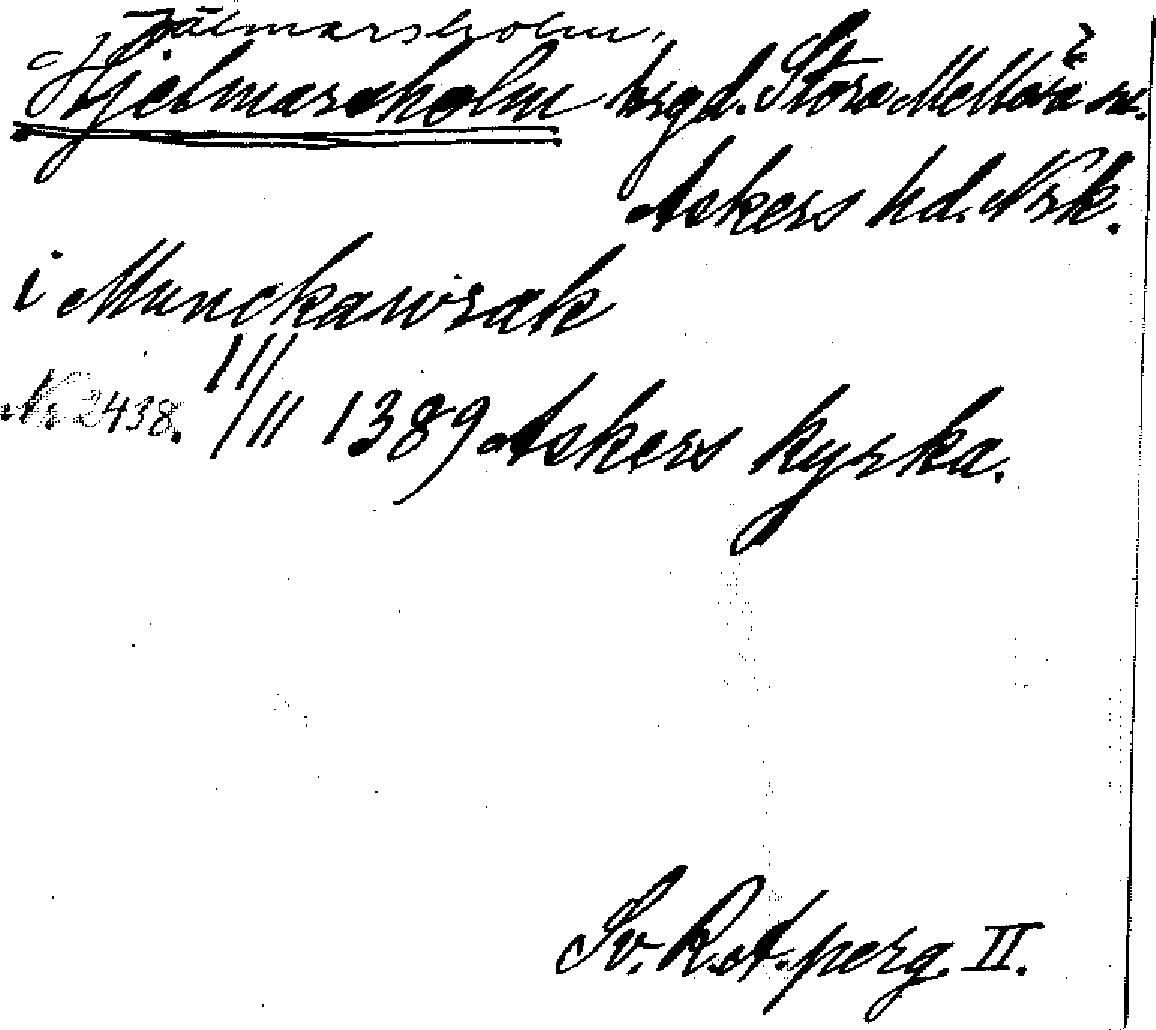 Hjälmarsholm,
Hjelmarsholm hrgd. Stora Mellösa sn.
Askers hd. Nrk.
i Munckawrak
Nr 2438. 111/11 1389 Askers kyrka.
Sv. R. A. perg. II.